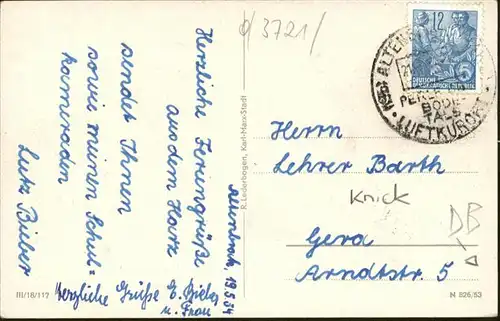 d 3721/
Altenbrak, 19.5.54
Herzliche Feriengrüße
aus dem Harz
sendet Ihnen
sowie meinen Schul=
kameraden
Lutz Bieber
Herzliche Grüße E. Bieber
u. Frau
III/18/117
R. Lederbogen, Karl-Marx-Stadt
12
DEUTSCHE
DEMOKRATISCHE REPUBLIK
5
ALTEN
PER
BODE
TALS
LUFTKURORT
Herrn
Lehrer Barth
Knick
Gera
Arndtstr. 5
DB
N 826/53